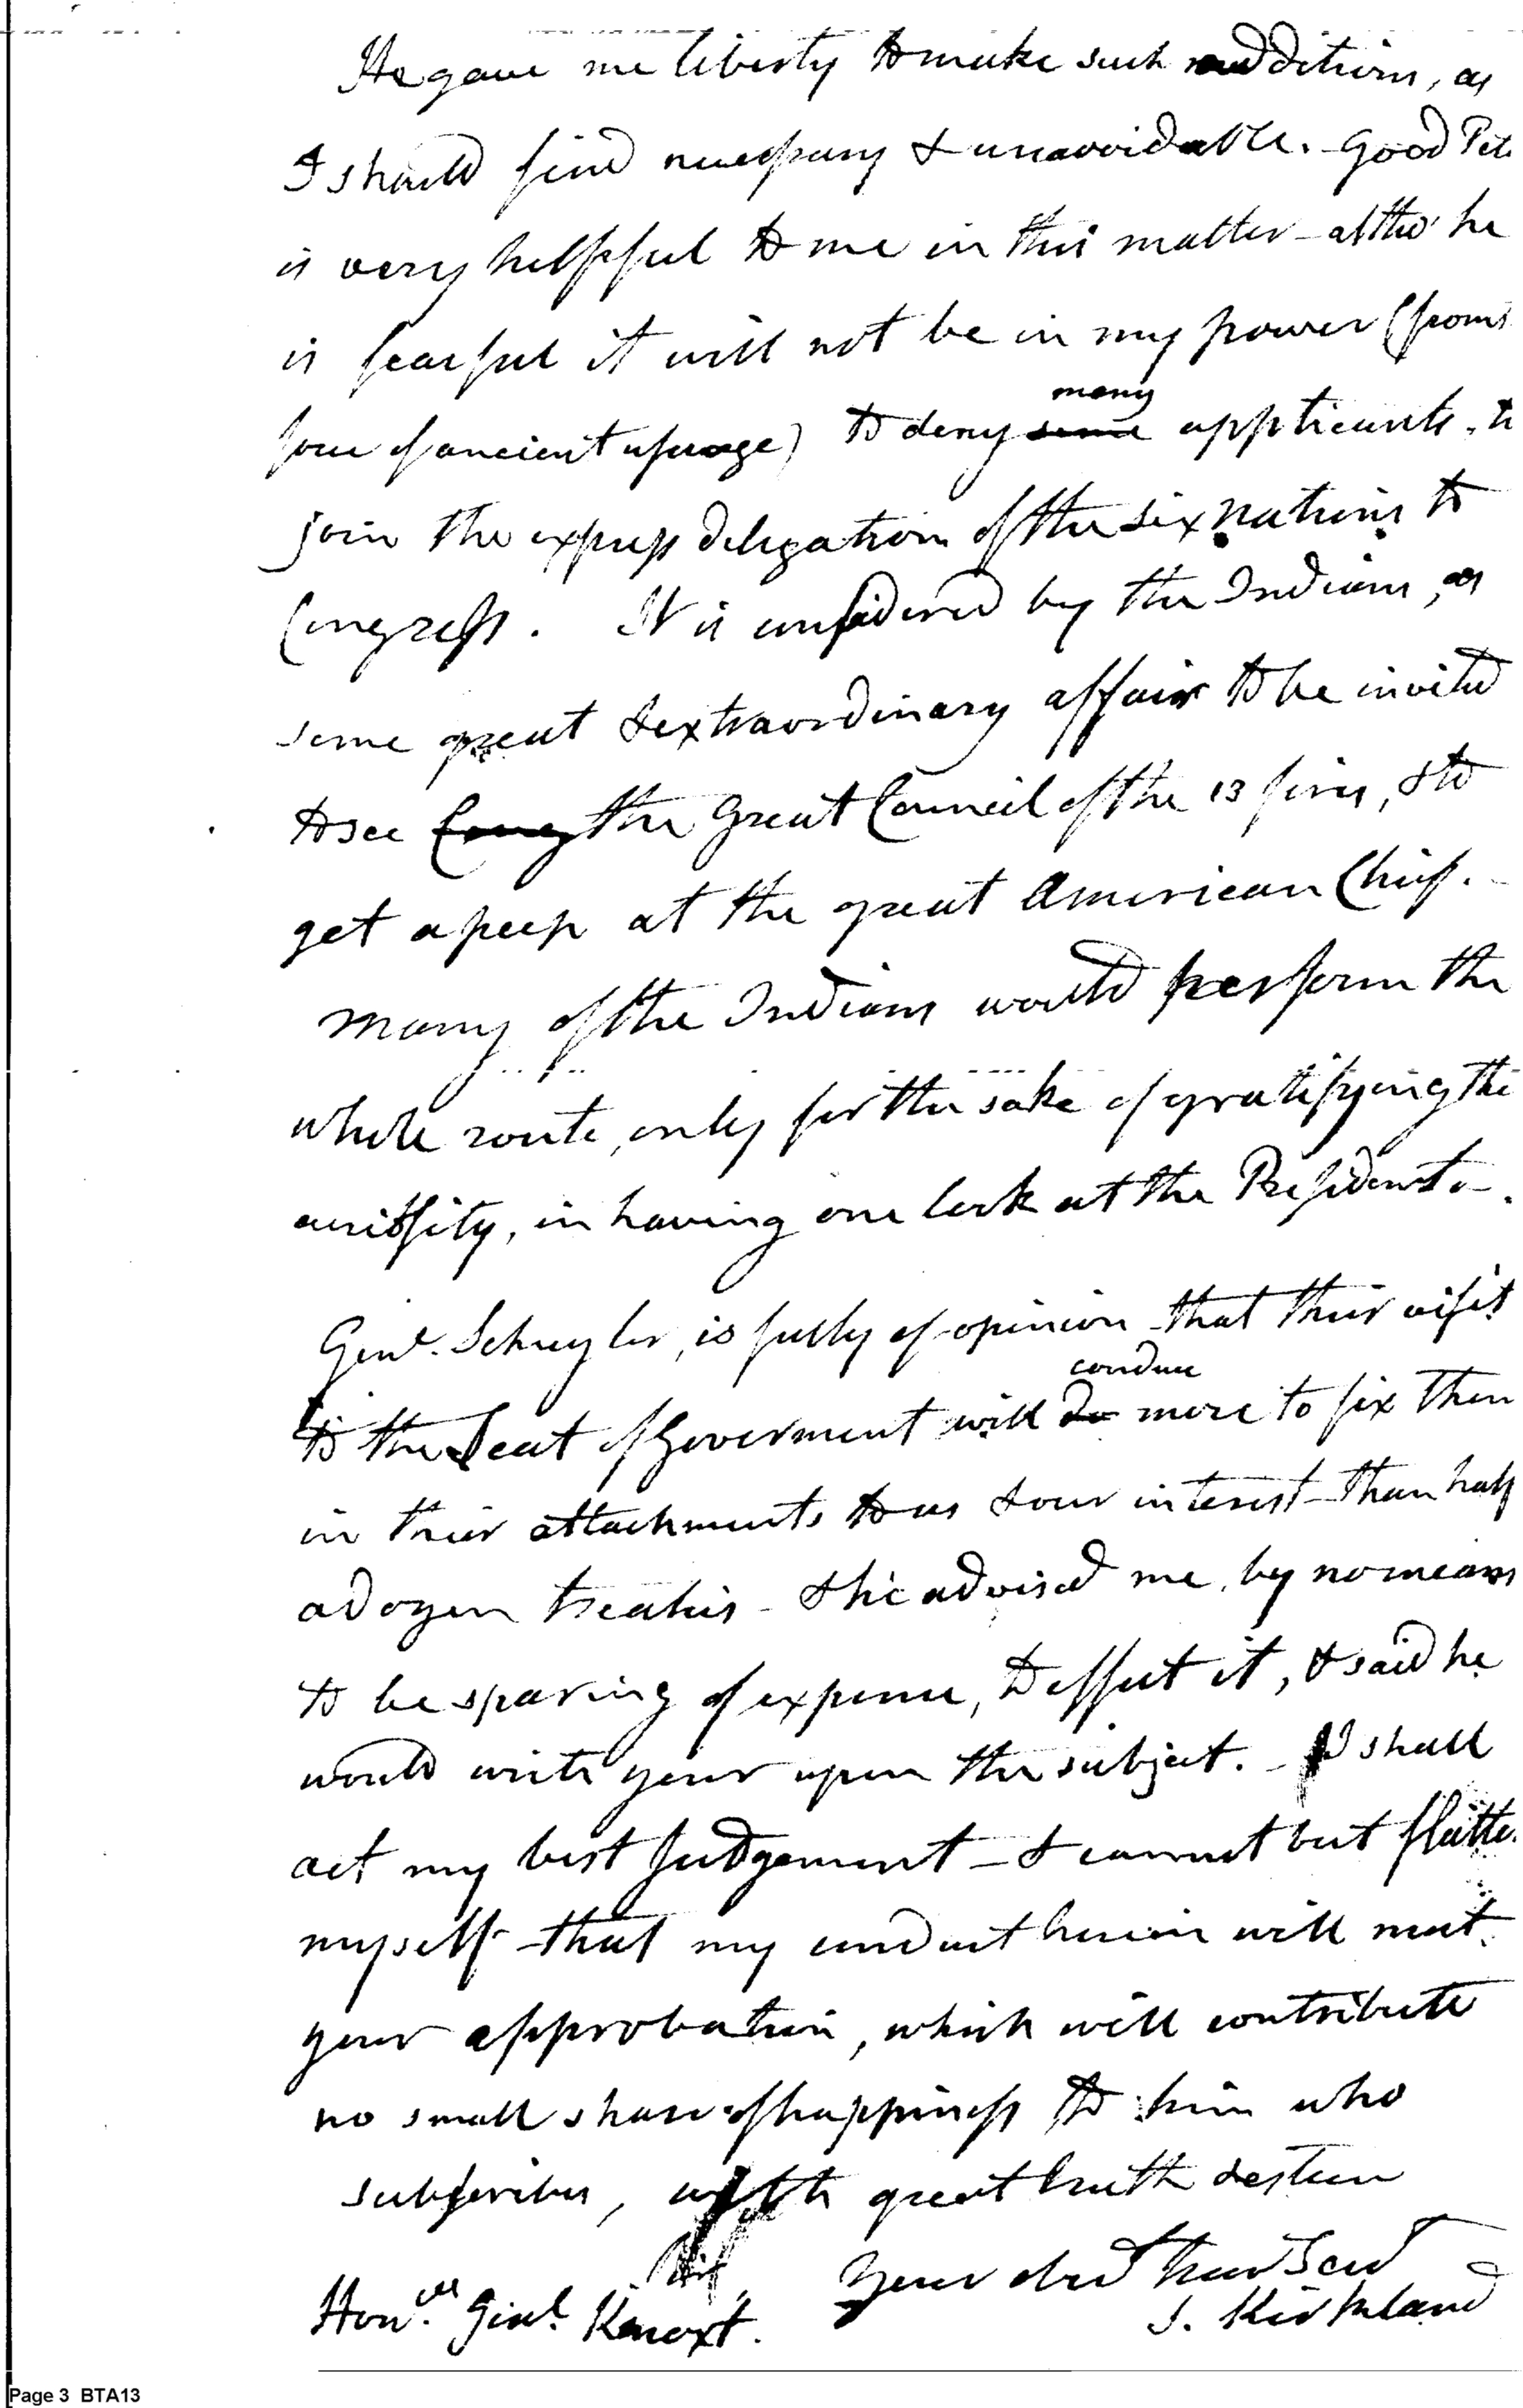 He gave me liberty to make such additions, as
I should find necessary & unavoidable. - Good Pete
is very helpful to me in this matter - altho' he
is fearful it will not be in my power (from
force of ancient usuage) to deny some many applicants, to
join the express deligation of the six nations to
Congress. It is considered by the Indians, as
some great & extraordinary affair to be invited
to see Cong the Great Council of the 13 fires, & to
get a peep at the great American Chief. -
many of the Indians would perform the
whole route, only for the sake of gratifying the
curiosity, in having one look at the President -.
Genl. Schuyler, is fully of opinion that their visit
to the Seat of Goverment will do conduce more to fix them
in their attachments to us & our interest - than half
a dozen treaties - & he advised me, by no means
to be sparing of expense, to effect it, & said he
would write your upon the subject. - I shall
act my best Judgement - & cannot but flatter
myself - that my conduct herein will meet
your approbation, which will contribute
no small share of happiness to him who
subscribes, with great truth & esteem
Sir
your obed Humb Serv
Honble. Genl. Knoxt.
S. Kirkland
Page 3 BTA13